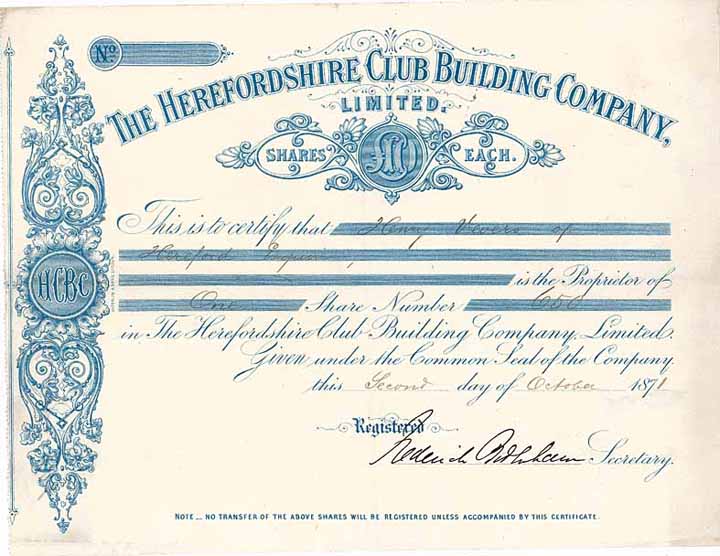 No
THE HEREFORDSHIRE CLUB BUILDING COMPANY,
LIMITED.
SHARES £10 EACH.
This is to certify that Henry Vevers of
Hereford Esquire
is the Proprietor of
One Share Number 656
in The Herefordshire Club Building Company, Limited.
Given under the Common Seal of the Company
this Second day of October 1871
Registered
Secretary.
HCBC
NOTE _ NO TRANSFER OF THE ABOVE SHARES WILL BE REGISTERED UNLESS ACCOMPANIED BY THIS CERTIFICATE.